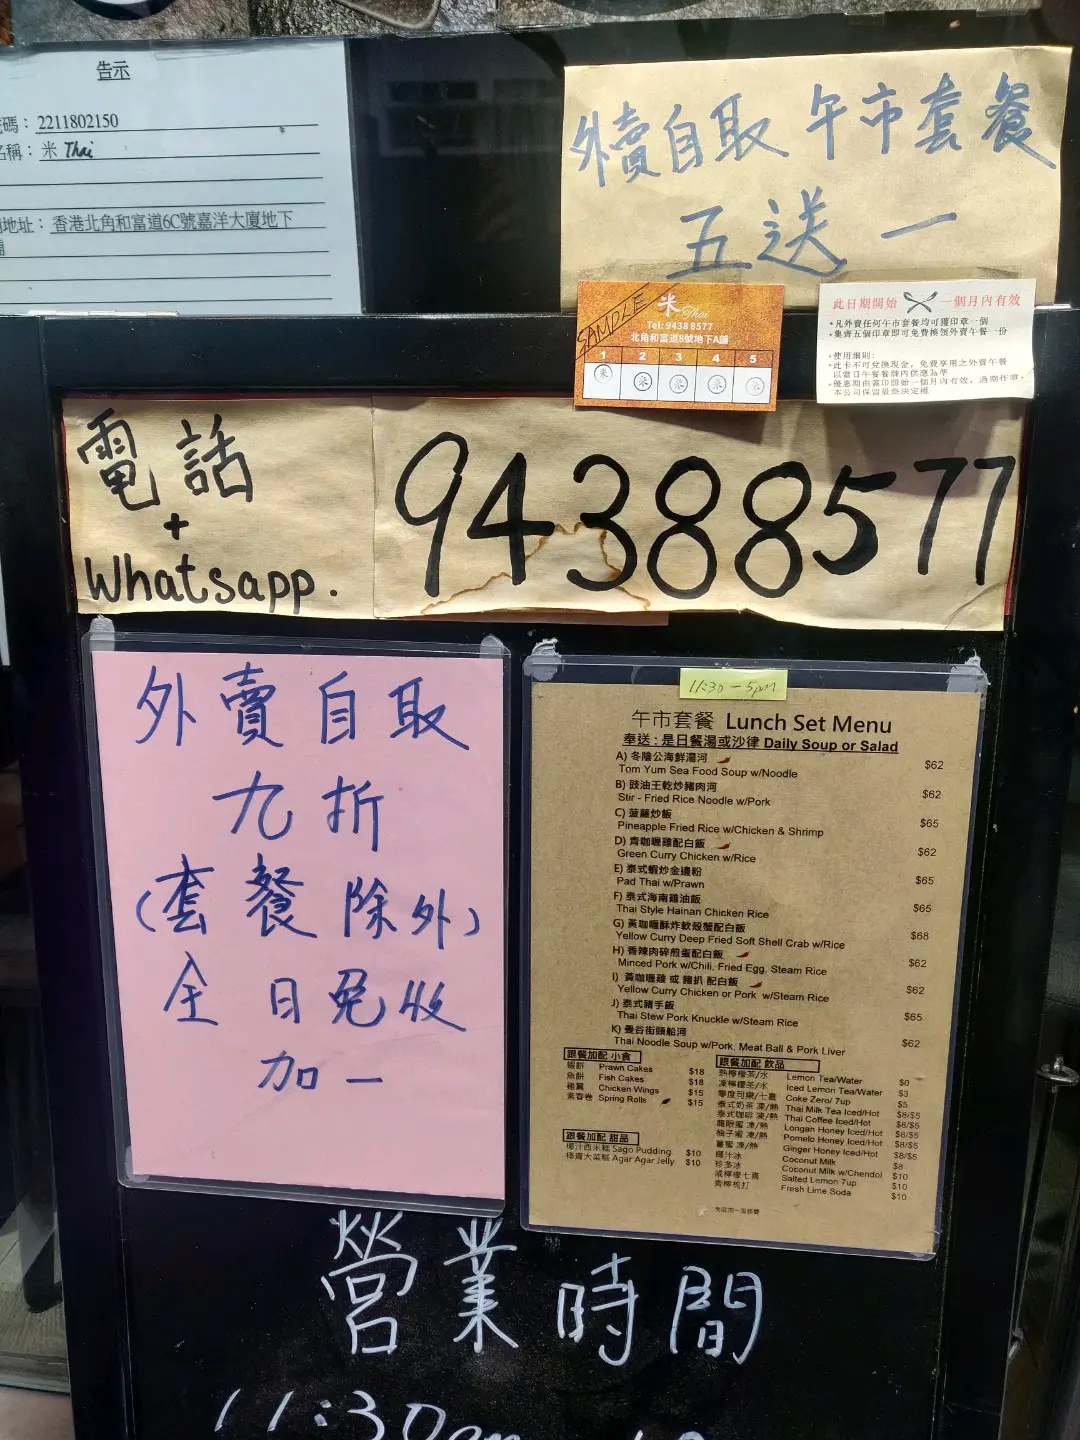 告示
碼：2211802150
名稱：米 Thai
地址：香港北角和富道6C號嘉洋大廈地下
舖
外賣自取 午市套餐
五送一
SAMPLE
米 Thai
Tel: 9438 8577
北角和富道8號地下A舖
1 2 3 4 5
米 米 米 米 米
此日期開始 一個月內有效
•凡外賣任何午市套餐均可獲印章一個
•集齊五個印章即可免費換領外賣午餐一份
•使用細則:
•此卡不可兌換現金，免費享用之外賣午餐
以當日午套餐牌內供應為準
•優惠期由蓋印開始一個月內有效，過期作廢。
本公司保留最終決定權
電話
+
Whatsapp.
94388577
外賣自取
九折
(套餐除外)
全日免收
加一
11:30 - 5pm
午市套餐 Lunch Set Menu
奉送 : 是日餐湯或沙律 Daily Soup or Salad
A) 冬陰公海鮮湯河 $62
Tom Yum Sea Food Soup w/Noodle
B) 豉油王乾炒豬肉河 $62
Stir - Fried Rice Noodle w/Pork
C) 菠蘿炒飯 $65
Pineapple Fried Rice w/Chicken & Shrimp
D) 青咖喱雞配白飯 $62
Green Curry Chicken w/Rice
E) 泰式蝦炒金邊粉 $65
Pad Thai w/Prawn
F) 泰式海南雞油飯 $65
Thai Style Hainan Chicken Rice
G) 黃咖喱酥炸軟殼蟹配白飯 $68
Yellow Curry Deep Fried Soft Shell Crab w/Rice
H) 香辣肉碎煎蛋配白飯 $62
Minced Pork w/Chili, Fried Egg, Steam Rice
I) 黃咖喱雞 或 豬扒 配白飯 $62
Yellow Curry Chicken or Pork w/Steam Rice
J) 泰式豬手飯 $65
Thai Stew Pork Knuckle w/Steam Rice
K) 曼谷街頭船河 $62
Thai Noodle Soup w/Pork, Meat Ball & Pork Liver
跟餐加配 小食
蝦餅 Prawn Cakes $18
魚餅 Fish Cakes $18
雞翼 Chicken Wings $15
素春卷 Spring Rolls $15
跟餐加配 甜品
椰汁西米糕 Sago Pudding $10
椰青大菜糕 Agar Agar Jelly $10
跟餐加配 飲品
熱檸檬茶/水 Lemon Tea/Water $0
凍檸檬茶/水 Iced Lemon Tea/Water $3
零度可樂/七喜 Coke Zero/ 7up $5
泰式奶茶 凍/熱 Thai Milk Tea Iced/Hot $8/$5
泰式咖啡 凍/熱 Thai Coffee Iced/Hot $8/$5
龍眼蜜 凍/熱 Longan Honey Iced/Hot $8/$5
柚子蜜 凍/熱 Pomelo Honey Iced/Hot $8/$5
薑蜜 凍/熱 Ginger Honey Iced/Hot $8/$5
椰汁冰 Coconut Milk $8
珍多冰 Coconut Milk w/Chendol $10
咸檸檬七喜 Salted Lemon 7up $10
青檸梳打 Fresh Lime Soda $10
免收加一服務費
營業時間
11:30am